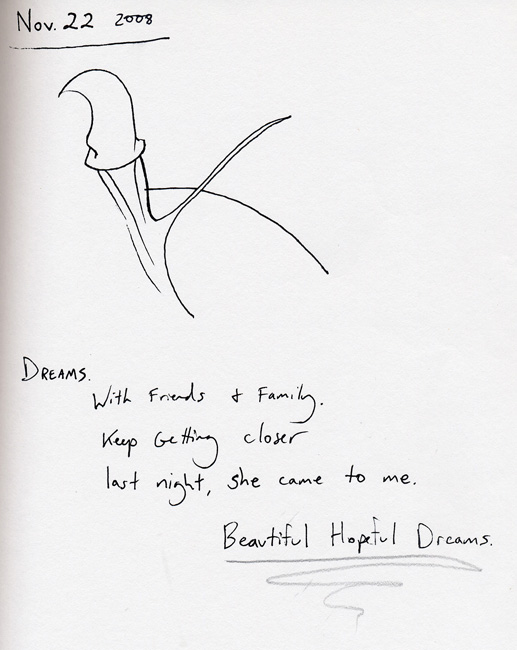 Nov. 22 2008
DREAMS.
With Friends & Family.
Keep Getting closer
last night, she came to me.
Beautiful Hopeful Dreams.